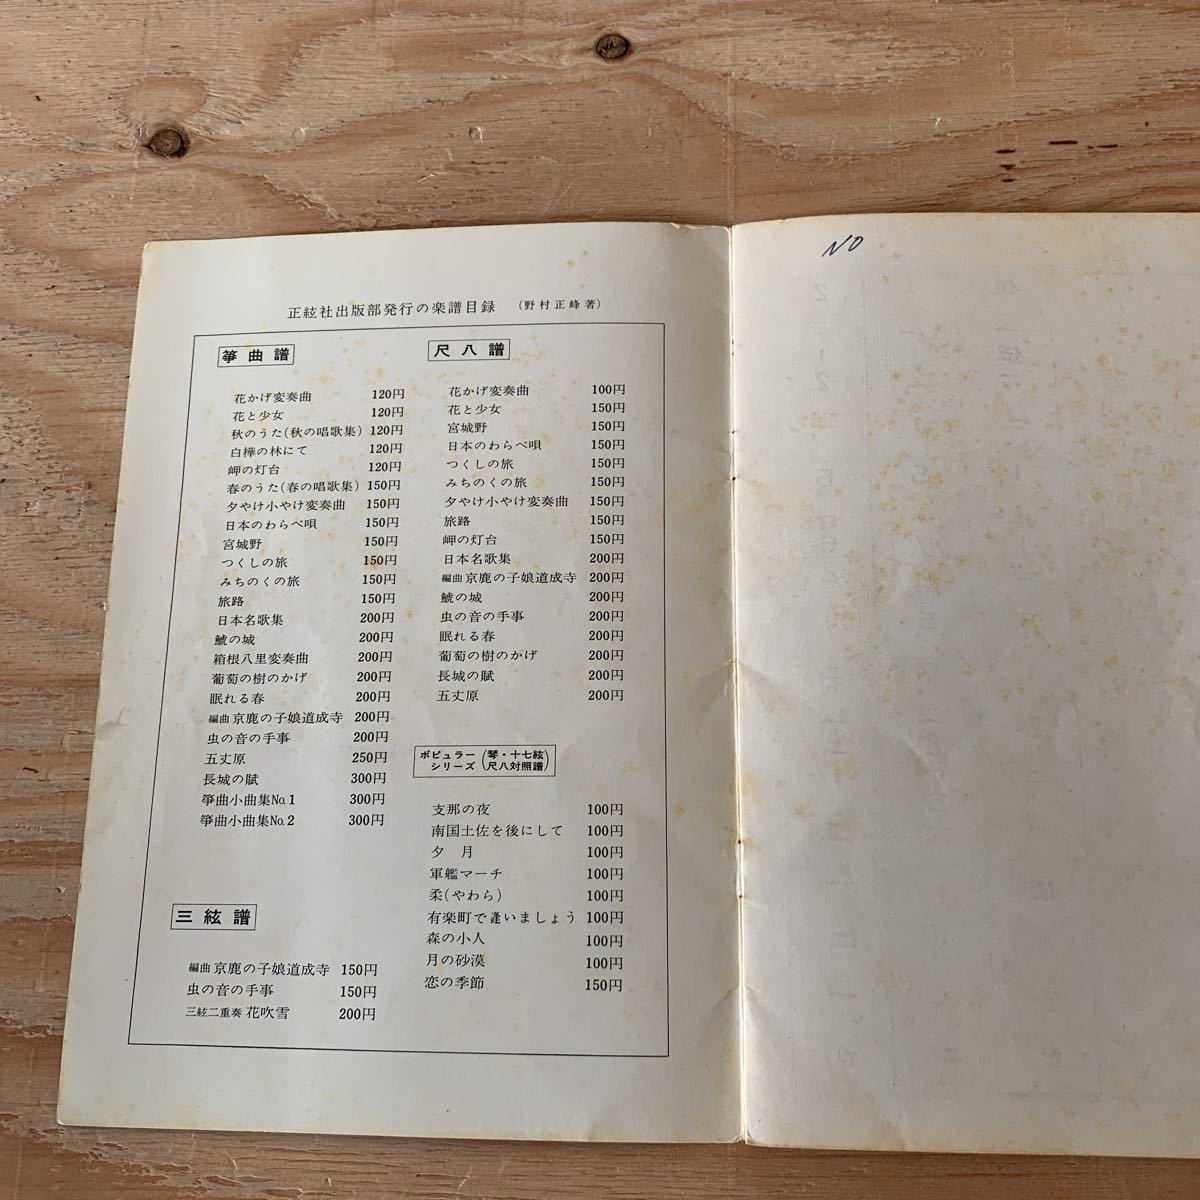 正絃社出版部発行の楽譜目録 (野村正峰著)
箏曲譜
花かげ変奏曲 120円
花と少女 120円
秋のうた(秋の唱歌集) 120円
白樺の林にて 120円
岬の灯台 120円
春のうた(春の唱歌集) 150円
夕やけ小やけ変奏曲 150円
日本のわらべ唄 150円
宮城野 150円
つくしの旅 150円
みちのくの旅 150円
旅路 150円
日本名歌集 200円
鯱の城 200円
箱根八里変奏曲 200円
葡萄の樹のかげ 200円
眠れる春 200円
編曲 京鹿の子娘道成寺 200円
虫の音の手事 200円
五丈原 250円
長城の賦 300円
箏曲小曲集No.1 300円
箏曲小曲集No.2 300円
三絃譜
編曲 京鹿の子娘道成寺 150円
虫の音の手事 150円
三絃二重奏 花吹雪 200円
尺八譜
花かげ変奏曲 100円
花と少女 150円
宮城野 150円
日本のわらべ唄 150円
つくしの旅 150円
みちのくの旅 150円
夕やけ小やけ変奏曲 150円
旅路 150円
岬の灯台 150円
日本名歌集 200円
編曲 京鹿の子娘道成寺 200円
鯱の城 200円
虫の音の手事 200円
眠れる春 200円
葡萄の樹のかげ 200円
長城の賦 200円
五丈原 200円
ポピュラーシリーズ (琴・十七絃 尺八対照譜)
支那の夜 100円
南国土佐を後にして 100円
夕月 100円
軍艦マーチ 100円
柔(やわら) 100円
有楽町で逢いましょう 100円
森の小人 100円
月の砂漠 100円
恋の季節 150円
NO